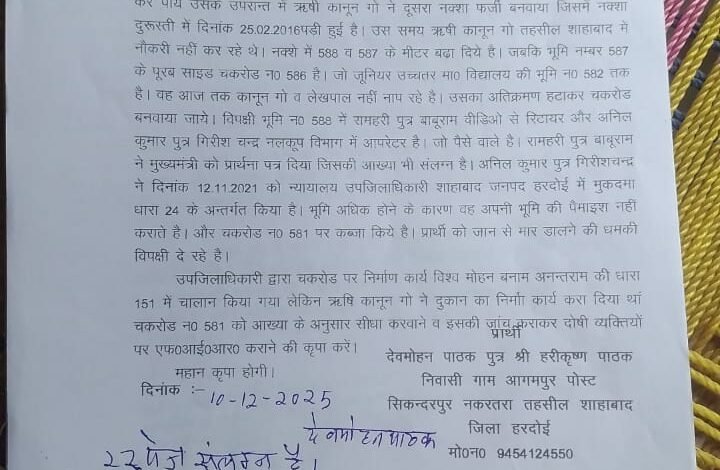 कर पाये उसके उपरान्त में ऋषी कानून गो ने दूसरा नक्शा फर्जी बनवाया जिसमें नक्शा
दुरूस्ती में दिनांक 25.02.2016पड़ी हुई है। उस समय ऋषी कानून गो तहसील शाहाबाद में
नौकरी नहीं कर रहे थे। नक्शे में 588 व 587 के मीटर बढा दिये है। जबकि भूमि नम्बर 587
के पूरब साइड चकरोड न0 586 है। जो जूनियर उच्चतर मा0 विद्यालय की भूमि न0 582 तक
है। वह आज तक कानून गो व लेखपाल नहीं नाप रहे है। उसका अतिक्रमण हटाकर चकरोड
बनवाया जाये। विपक्षी भूमि न0 588 में रामहरी पुत्र बाबूराम वीडिओ से रिटायर और अनिल
कुमार पुत्र गिरीश चन्द्र नलकूप विभाग में आपरेटर है। जो पैसे वाले है। रामहरी पुत्र बाबूराम
ने मुख्यमंत्री को प्रार्थना पत्र दिया जिसकी आख्या भी संलग्न है। अनिल कुमार पुत्र गिरीशचन्द्र
ने दिनांक 12.11.2021 को न्यायालय उपजिलाधिकारी शाहाबाद जनपद हरदोई में मुकदमा
धारा 24 के अन्तर्गत किया है। भूमि अधिक होने के कारण वह अपनी भूमि की पैमाइश नहीं
कराते है। और चकरोड न0 581 पर कब्जा किये है। प्रार्थी को जान से मार डालने की धमकी
विपक्षी दे रहे है।
उपजिलाधिकारी द्वारा चकरोड पर निर्माण कार्य विश्व मोहन बनाम अनन्तराम की धारा
151 में चालान किया गया लेकिन ऋषि कानून गो ने दुकान का निर्माा कार्य करा दिया थां
चकरोड न0 581 को आख्या के अनुसार सीधा करवाने व इसकी जांच कराकर दोषी व्यक्तियों
पर एफ0आई0आर0 कराने की कृपा करें।
प्रार्थी
महान कृपा होगी।
देवमोहन पाठक पुत्र श्री हरीकृष्ण पाठक
दिनांक :- 10-12-2025
निवासी गाम आगमपुर पोस्ट
सिकन्दरपुर नकरतरा तहसील शाहाबाद
देवमोहन पाठक
जिला हरदोई
22 पेज संलग्न है।
मो0न0 9454124550